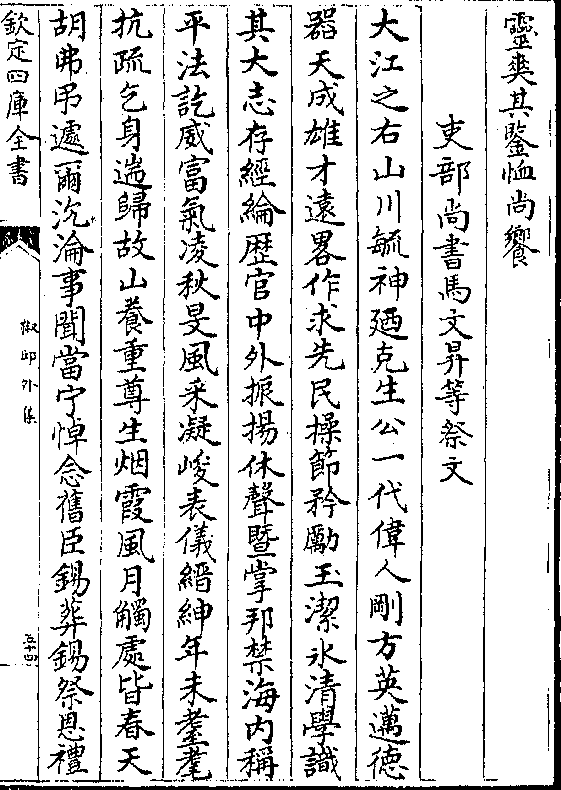 靈爽其鑒恤尚饗
吏部尚書馬文昇等祭文
大江之右山川毓神廼克生公一代偉人剛方英邁德
器天成雄才遠畧作求先民操節矜勵玉潔氷清學識
其大志存經綸歴官中外振揚休聲暨掌邦禁海内稱
平法訖威富氣凌秋旻風采凝峻表儀縉紳年未耋耄
抗疏乞身遄歸故山養重尊生烟霞風月觸處皆春天
胡弗弔遽爾沉淪事聞當宁悼念舊臣錫葬錫祭恩禮
欽定四庫全書
椒邱外集
五十四